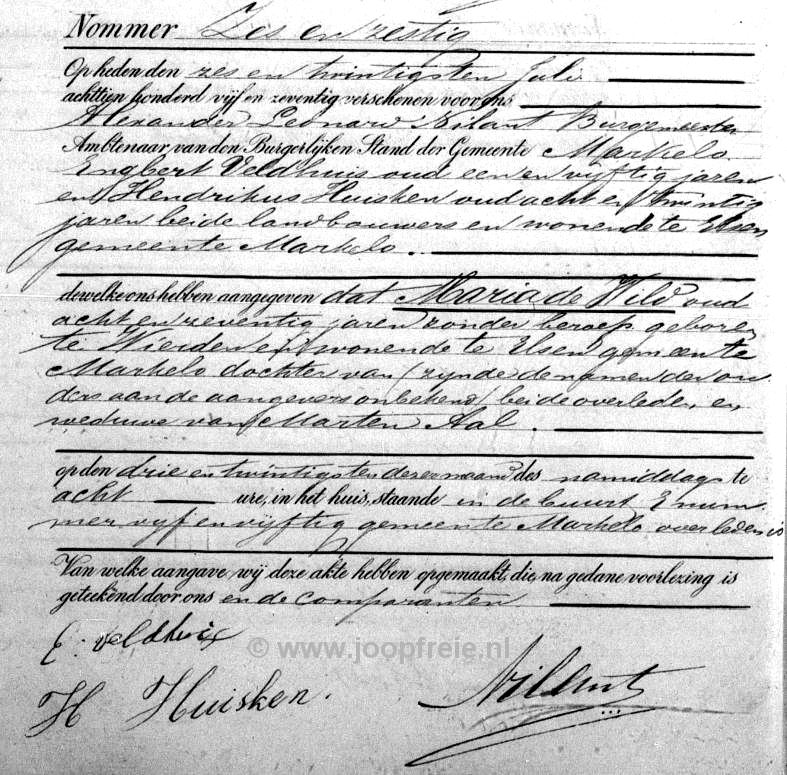 Nommer Zes en zestig
Op heden den zes en twintigsten Juli
achttien honderd vijf en zeventig verschenen voor ons
Alexander Leonard Nilant Burgemeester
Ambtenaar van den Burgerlijken Stand der Gemeente Markelo
Engbert Veldhuis oud een en vijftig jaren
en Hendrikus Huisken oud acht en twintig
jaren beide landbouwers en wonende te Elsen
gemeente Markelo.
dewelke ons hebben aangegeven dat Maria de Wild oud
acht en zeventig jaren zonder beroep geboren
te Wierden en wonende te Elsen gemeente
Markelo dochter van (zynde de namen der ou
ders aan de aangevers onbekend) beide overleden en
weduwe van Marten Aal.
op den drie en twintigsten dezer maand des namiddags te
acht ure, in het huis, staande in de buurt E num
mer vyf en vyftig gemeente Markelo overleden is
Van welke aangave wij deze akte hebben opgemaakt, die, na gedane voorlezing is
geteekend door ons en de comparanten
E. veldhuis
© www.joopfreie.nl
H Huisken.
Nilant